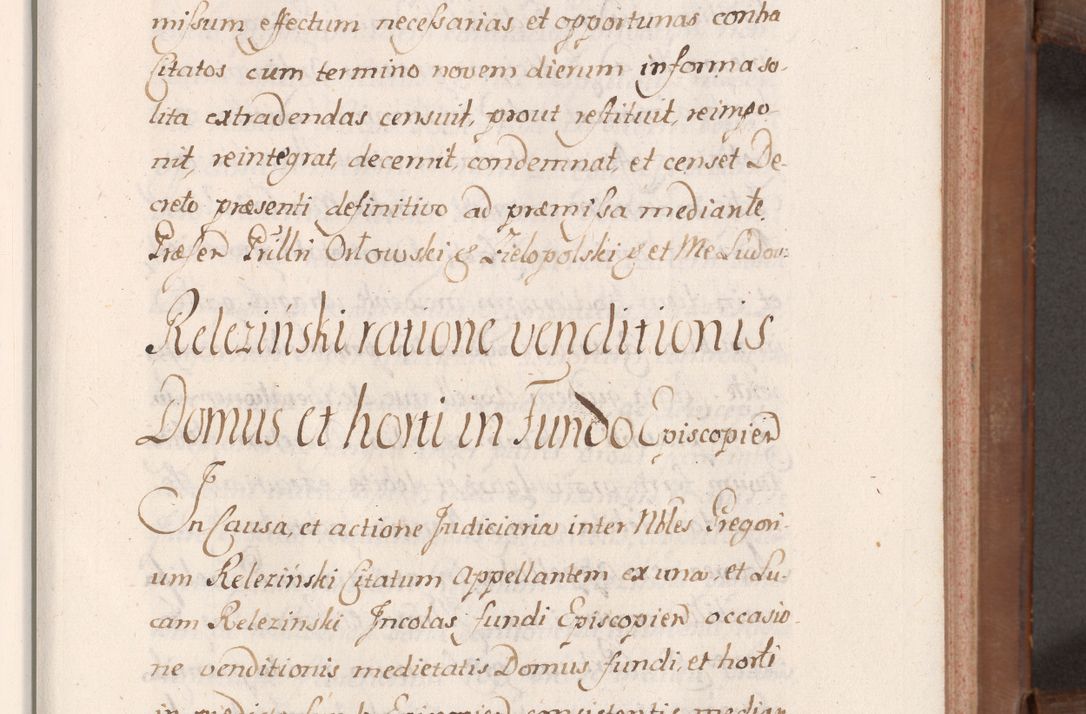 missum effectum necessarias et opportunas contra
Citatos cum termino novem dierum in forma so-
lita extradendas censuit, prout restituit, reimpo-
nit, reintegrat, decernit, condemnat, et censet De-
creto præsenti definitivo ad præmissa mediante.
Orłowski & Wielopolski & et Me Ludov:
Relezinski ratione venditionis
Domus et horti in Fundo Episcopien
In Causa, et actione Judiciaria inter Nbles Gregori-
um Releziński Citatum Appellantem ex una, et Lu-
cam Relezinski Incolas fundi Episcopien occasio-
ne venditionis medietatis Domus, fundi, et horti
Episcopien consistentis median